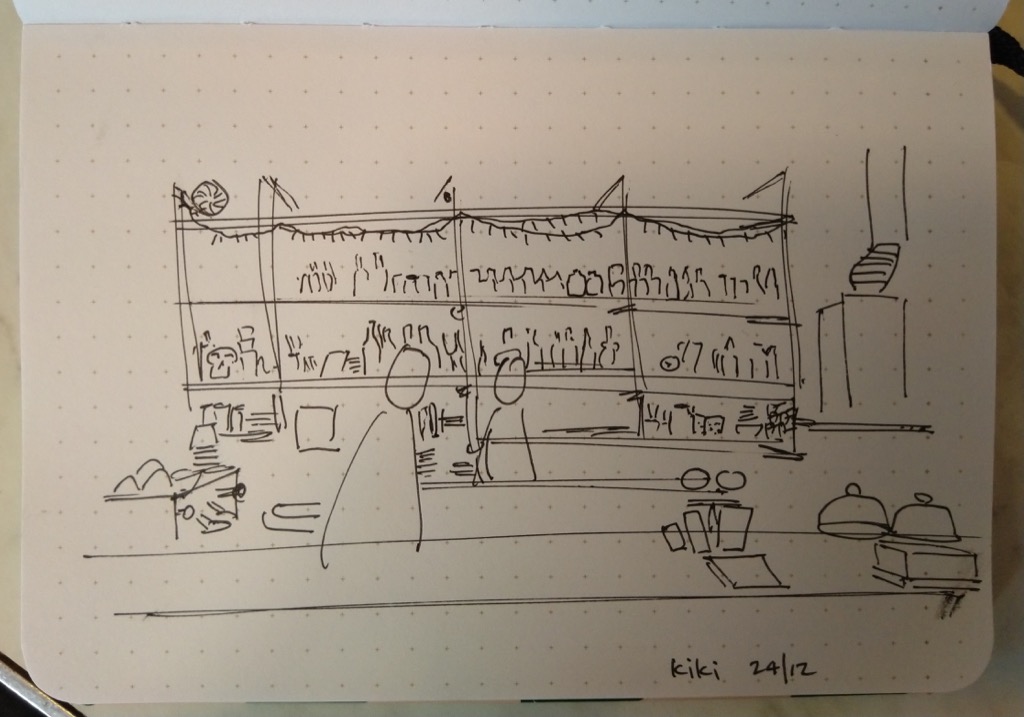 kiki 24/12